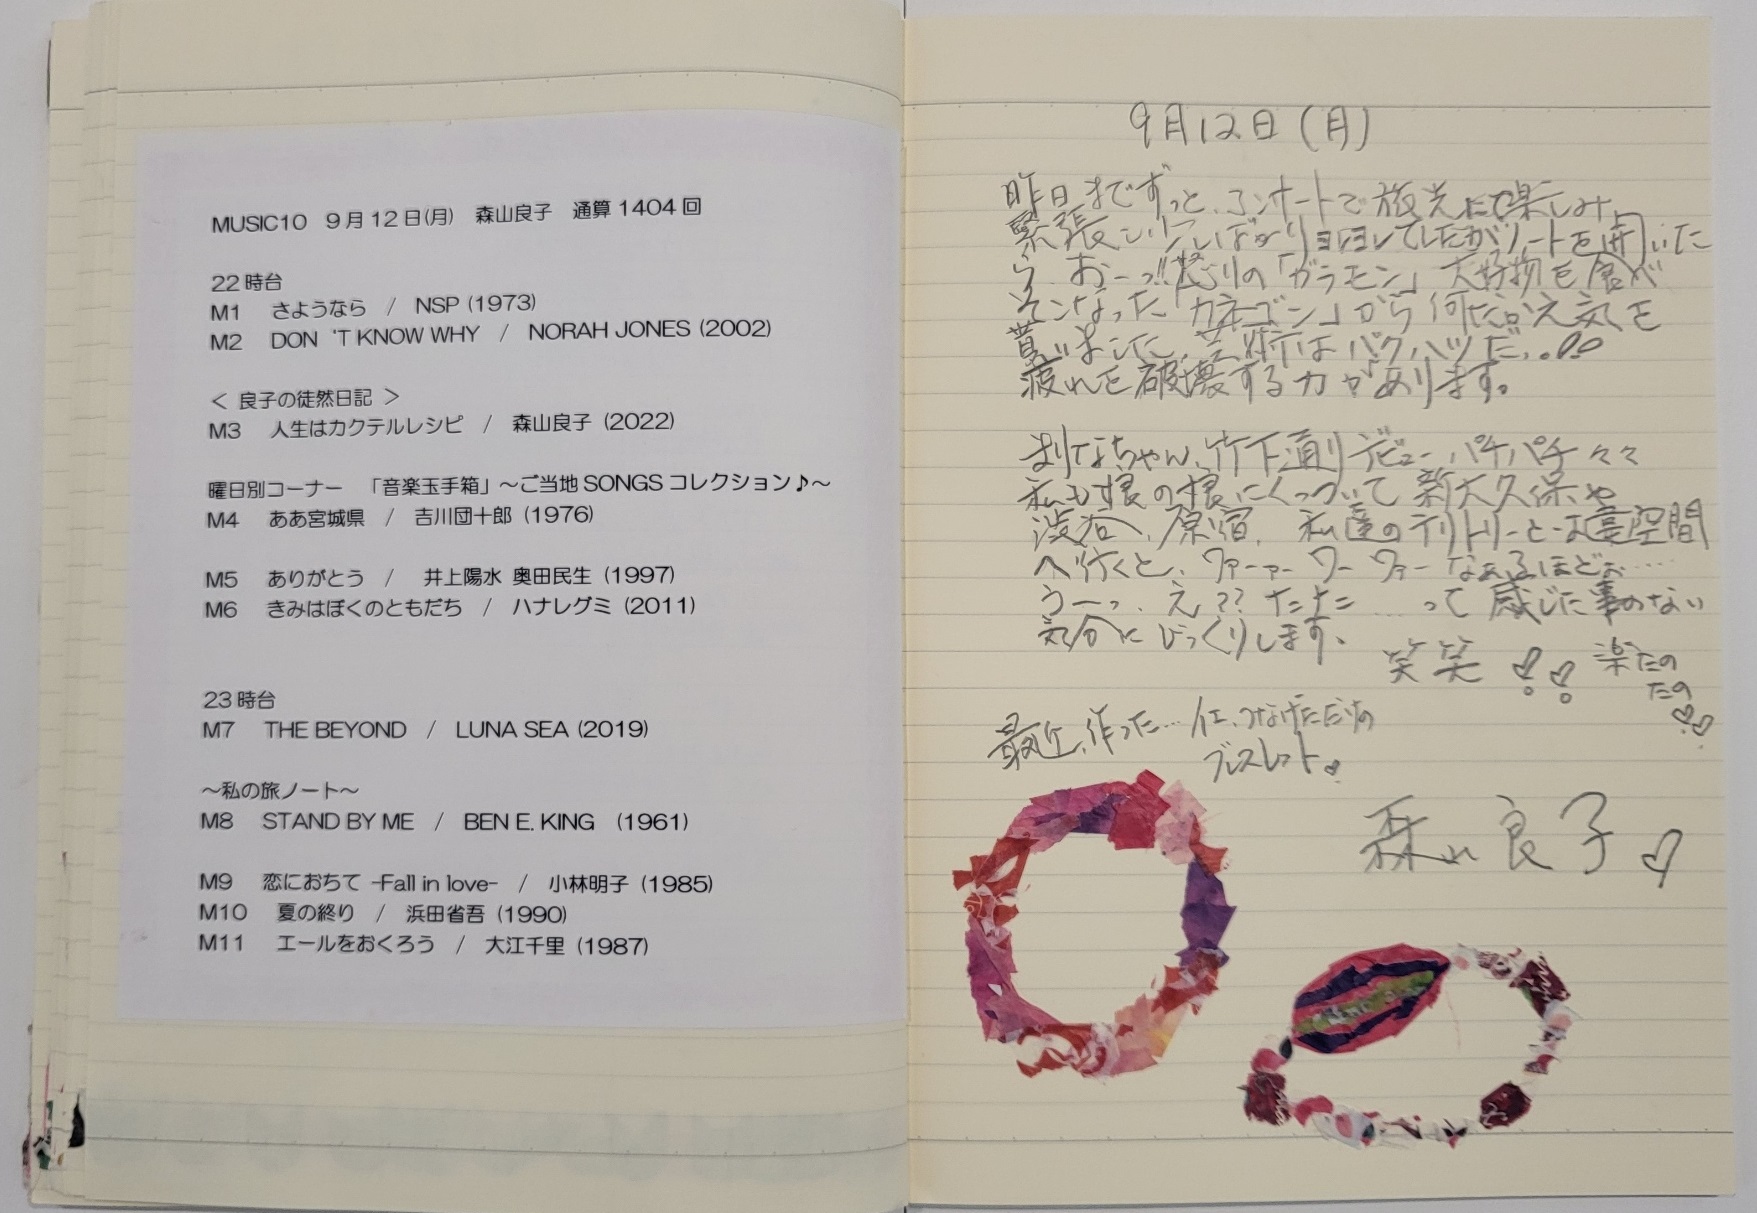 MUSIC10 9月12日(月) 森山良子 通算1404回
22時台
M1 さようなら / NSP (1973)
M2 DON 'T KNOW WHY / NORAH JONES (2002)
＜ 良子の徒然日記 ＞
M3 人生はカクテルレシピ / 森山良子 (2022)
曜日別コーナー 「音楽玉手箱」～ご当地SONGSコレクション♪～
M4 ああ宮城県 / 吉川団十郎 (1976)
M5 ありがとう / 井上陽水 奥田民生 (1997)
M6 きみはぼくのともだち / ハナレグミ (2011)
23時台
M7 THE BEYOND / LUNA SEA (2019)
～私の旅ノート～
M8 STAND BY ME / BEN E. KING (1961)
M9 恋におちて -Fall in love- / 小林明子 (1985)
M10 夏の終り / 浜田省吾 (1990)
M11 エールをおくろう / 大江千里 (1987)
9月12日(月)
昨日までずっと、コンサートで旅先にて楽しみ、
緊張しノートを開いた
ら、おーっ!!怒りの「ガラモン」大好物を食べ
そこなった「カネゴン」から何だか元気を
貰いました、芸術はバクハツだ、、!!
疲れを破壊する力があります。
まりなちゃん、竹下通りデビュー、パチパチ々々
私も娘の娘にくっついて新大久保や
渋谷、原宿、私達のテリトリーと空間
へ行くと、ワァーァー ワー ワァー なぁるほどぉ……
うーっ、え?? …って感じた事のない
気分にびっくりします、
笑笑!! 楽たの
たの
!!
最近、作った…イエ、つなげただけの
ブレスレット
森山良子